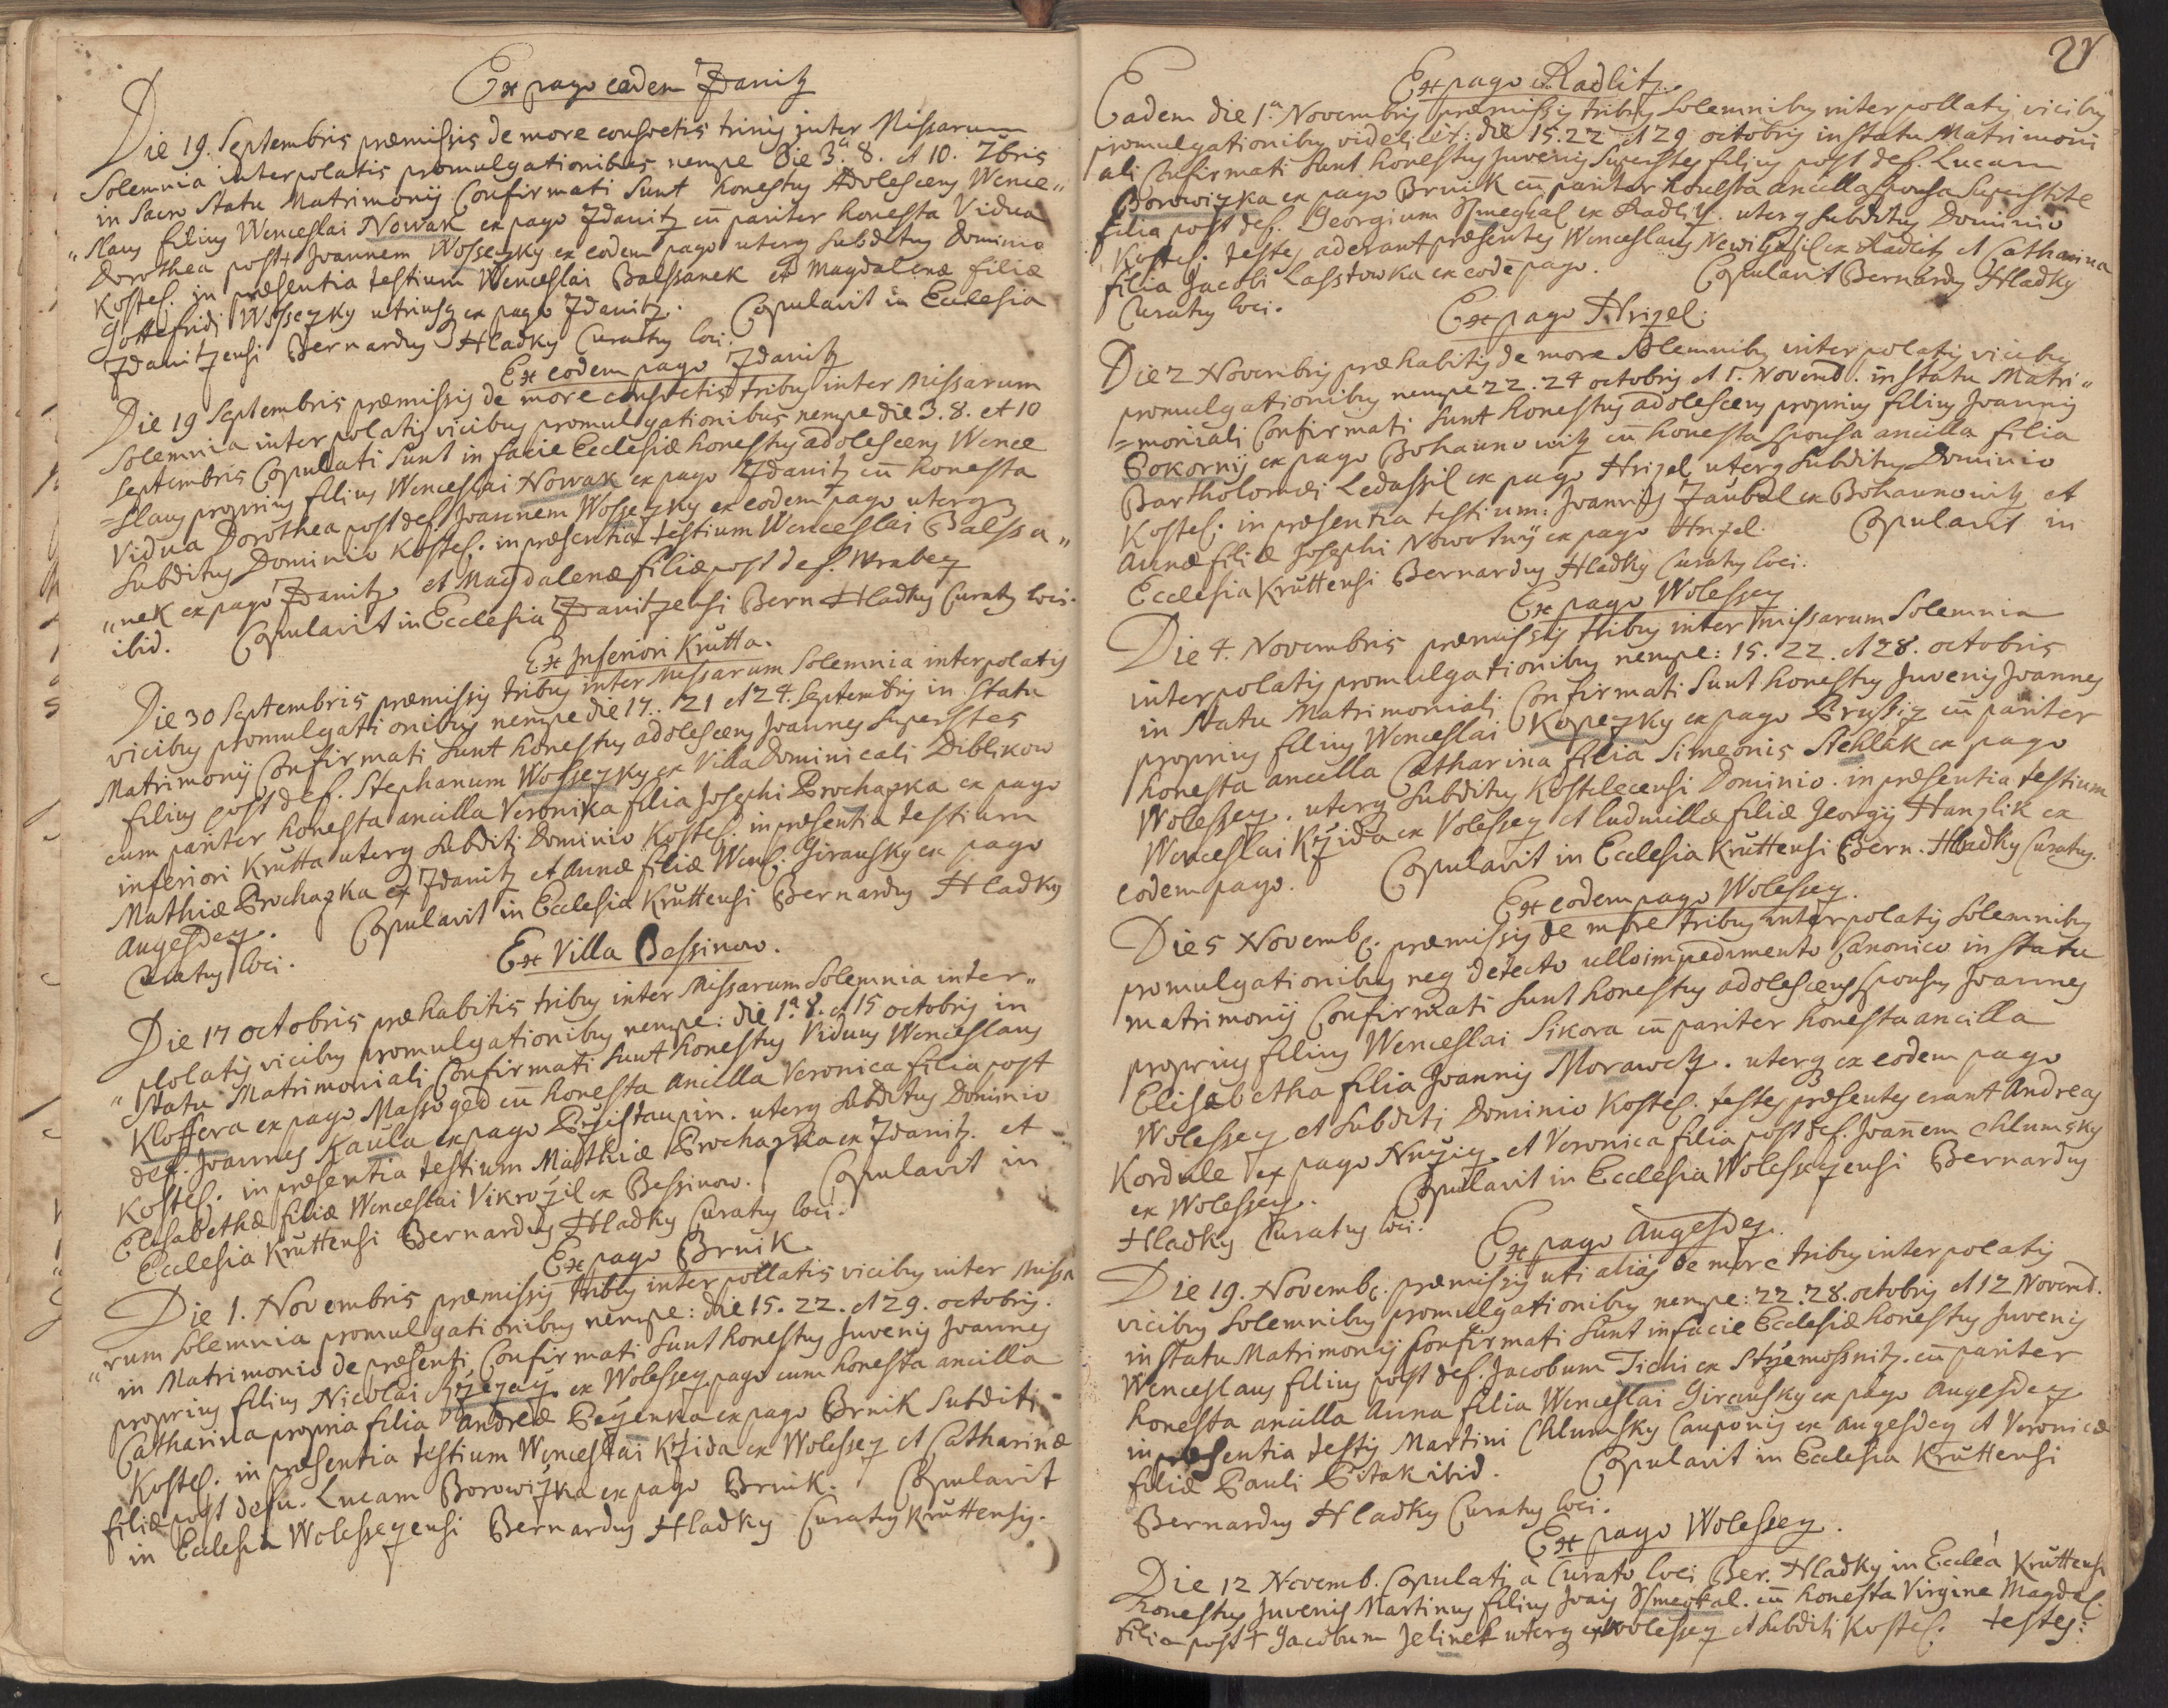 Ex pago eadem Zdanitz
Die 19. Septembris præmissis de more consvetis trinis inter Missarum
Solemnia interpolatis promulgationibus nempe Die 3.ª 8. et 10. 7bris
in Sacro Statu Matrimonij Confirmati Sunt honestus Adolescens Wence„
„slaus filius Wenceslai Nowak ex pago Zdanitz cū pariter honesta Vidua
Dorothea post † Joannem Wosseczky ex eodem pago uterq subditus Dominio
Kostel. in præsentia testium Wenceslai Balssanek et Magdalenæ filiæ
Gottefridi Wosseczky utriusq ex pago Zdanitz. Copulavit in Ecclesia
Zdanitzensi Bernardus Hladky Curatus loci.
Ex eodem pago Zdanitz
Die 19 Septembris præmissis de more consvetis tribus inter Missarum
Solemnia interpolatis vicibus promulgationibus nempe die 3. 8. et 10
Septembris Copulati Sunt in facie Ecclesiæ honestus adolescens Wence
=slaus proprius filius Wenceslai Nowak ex pago Zdanitz cū honesta
Vidua Dorothea post def. Joannem Wosseczky ex eodem pago uterq
Subditus Dominio Kostel. in præsentia testium Wenceslai Balssa„
„nek ex pago Zdanitz et Magdalenæ filiæ post def. Wrabecz
ibid. Copulavit in Ecclesia Zdanitzensi Bern Hladky Curatus loci.
Ex Inferiori Krutta.
Die 30 Septembris præmissis tribus inter Missarum Solemnia interpolatis
vicibus promulgationibus nempe die 17. 21 et 24. Septembris in Statu
Matrimonij Confirmati Sunt honestus adolescens Joannes Superstes
filius post def. Stephanum Wosseczky ex Villa Dominicali Diblikow
cum pariter honesta ancilla Veronika filia Josephi Prochazka ex pago
inferiori Krutta uterq Subditi Dominio Kostel. in præsentia testium
Mathiæ Prochazka ex Zdanitz et Annæ filiæ Wencl. Girausky ex pago
Augezdecz. Copulavit in Ecclesia Kruttensi Bernardus Hladky
Curatus loci.
Ex Villa Bessinow.
Die 17 octobris præhabitis tribus inter Missarum Solemnia inter„
„pollatis vicibus promulgationibus nempe: die 1.ª 8. et 15 octobris in
Statu Matrimoniali Confirmati Sunt honestus Viduus Wenceslaus
Kloffera ex pago Massoged cū honesta Ancilla Veronica filia post
def. Joannes Kaula ex pago Przistaupin. uterq Subditus Dominio
Kostel. in præsentia testium Mathiæ Prochazka ex Zdanitz. et
Elisabethæ filiæ Wenceslai Vikrozil ex Bessinow. Copulavit in
Ecclesia Kruttensi Bernardus Hladky Curatus loci.
Ex pago Brnik.
Die 1. Novembris præmissis tribus interpollatis vicibus inter Missa
„rum Solemnia promulgationibus nempe: die 15. 22. et 29. octobris.
in Matrimonio de præsenti Confirmati Sunt honestus Juvenis Joannes
proprius filius Nicolai ex Wolessecz pago cum honesta ancilla
Catharina propria filia Andreæ ex pago Brnik Subditi
Kostel. in præsentia testium Wenceslai Krzida ex Wolessecz et Catharinæ
filiæ post defu. Lucam Borowiczka ex pago Brnik. Copulavit
in Ecclesia Wolesseczensi Bernardus Hladky Curatus Kruttensis.
21
Ex pago Radlitz.
Eadem die 1.ª Novembris præmissis tribus Solemnibus interpollatis vicibus
promulgationibus videlicet: die 15. 22 et 29 octobris in Statu Matrimoni
ali Confirmati Sunt honestus Juvenis Superstes filius post def. Lucam
Borowiczka ex pago Brnik cū pariter honesta ancilla sponsa Superstite
filia post def. Georgium Ssmegkal ex Radlitz. uterq subditus Dominio
Kostel. testes aderant præsentes Wenceslaus ex Radlitz et Catharina
filia Jacobi Lasstowka ex eodē pago. Copulavit Bernardus Hladky
Curatus loci.
Ex pago Hrizel.
Die 2 Novembris præhabitis de more Solemnibus interpolatis vicibus
promulgationibus nempe 22. 24 octobris et 1. Novemb. in Statu Matri„
=moniali Confirmati Sunt honestus adolescens proprius filius Joannis
Pokornij ex pago Bohaunowitz cū honesta Sponsa ancilla filia
Bartholomæi Ledassil ex pago Hrizel uterq Subditus Dominio
Kostel. in præsentia testium: Joannis Zaubal ex Bohaunowitz et
Annæ filiæ Josephi Nowotnij ex pago Hrizel. Copulavit in
Ecclesia Kruttensi Bernardus Hladky Curatus loci.
Ex pago Wolessecz
Die 4. Novembris præmissis tribus inter missarum Solemnia
interpolatis promulgationibus nempe: 15. 22. et 28. octobris
in Statu Matrimoniali Confirmati Sunt honestus Juvenis Joannes
proprius filius Wenceslai Kopeczky ex pago Prussicz cū pariter
honesta ancilla Catharina filia Simeonis Stehlik ex pago
Wolessecz. uterq Subditus Kostelecensi Dominio. in præsentia testium
Wenceslai Krzida ex Volessecz et Ludmillæ filiæ Georgij Hanzlik ex
eodem pago. Copulavit in Ecclesia Kruttensi Bern. Hladky Curatus.
Ex eodem pago Wolessecz.
Die 5 Novemb. præmissis de more tribus interpolatis Solemnibus
promulgationibus neq detecto ullo impedimento Canonico in Statu
matrimonij Confirmati Sunt honestus adolescens sponsus Joannes
proprius filius Wenceslai Sikora cū pariter honesta ancilla
Elisabetha filia Joannis Morawetz. uterq ex eodem pago
Wolessecz et Subditi Dominio Kostel. testes præsentes erant Andreas
Kordule ex pago Nuzicz et Veronica filia post def. Joañem Chlumsky
ex Wolessecz. Copulavit in Ecclesia Wolesseczensi Bernardus
Hladky Curatus loci.
Ex pago Augezdecz.
Die 19. Novemb. præmissis uti alias de more tribus interpolatis
vicibus Solemnibus promulgationibus nempe: 22. 28. octobris et 12 Novemb.
in Statu Matrimonij Confirmati Sunt in facie Ecclesiæ honestus Juvenis
Wenceslaus filius post def. Jacobum Tichi ex Strzemossnitz. cū pariter
honesta ancilla Anna filia Wenceslai Girausky ex pago Augezdecz
in præsentia testis Martini Chlumsky Cauponis ex Augezdecz et Veronicæ
filiæ Pauli Pitak ibid. Copulavit in Ecclesia Kruttensi
Bernardus Hladky Curatus loci.
Ex pago Wolessecz.
Die 12 Novemb. Copulati à Curato loci Ber. Hladky in Eccleã Kruttensi
honestus Juvenis Martinus filius Joais Ssmegkal. cū honesta Virgine Magdal.
filia post † Jacobum Jelinek uterq ex Wolessecz et Subditi Kostel. testes: